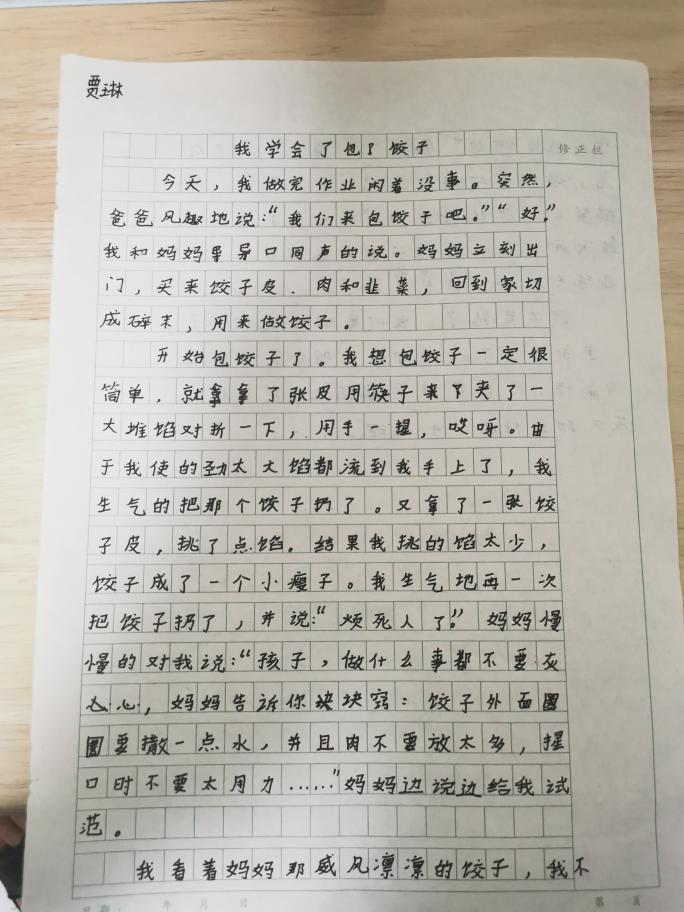 贾琳
我学会了包了饺子
修正栏
今天,我做完作业闲着没事。突然,
爸爸风趣地说:“我们来包饺子吧。”“好”
我和妈妈里异口同声的说。妈妈立刻出
门,买来饺子皮、肉和韭菜,回到家切
成碎末,用来做饺子。
开始包饺子了。我想包饺子一定很
简单,就拿拿了张皮用筷子来下夹了一
大堆馅对折一下,用手一握,哎呀。由
于我使的劲太大馅都流到我手上了,我
生气的把那个饺子扔了。又拿了一张饺
子皮,挑了点馅。结果我挑的馅太少,
饺子成了一个小瘦子。我生气地再一次
把饺子扔了,并说:“烦死人了。”妈妈慢
慢的对我说:“孩子,做什么事都不要灰
心心,妈妈告诉你决诀窍:饺子外面圆
圈要撒一点水,并且肉不要放太多,握
口时不要太用力……”妈妈边说边给我试
范。
我看着妈妈那威风凛凛的饺子,我不
日期: 年 月 日 第 页